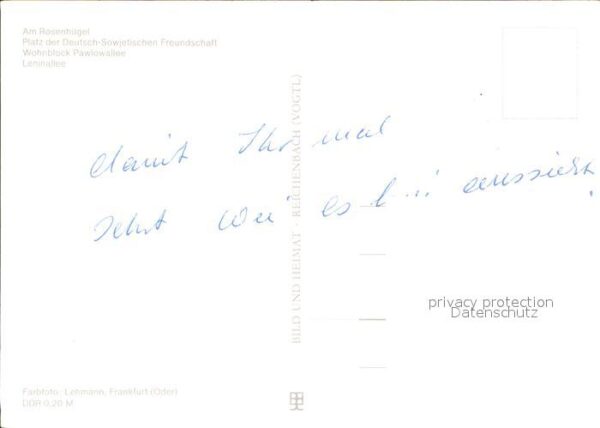 Am Rosenhügel
Platz der Deutsch-Sowjetischen Freundschaft
Wohnblock Pawlowallee
Leninallee
damit Ihr mal
seht wie es aussieht
BILD UND HEIMAT · REICHENBACH (VOGTL)
privacy protection
Datenschutz
Farbfoto: Lehmann, Frankfurt (Oder)
DDR 0,20 M